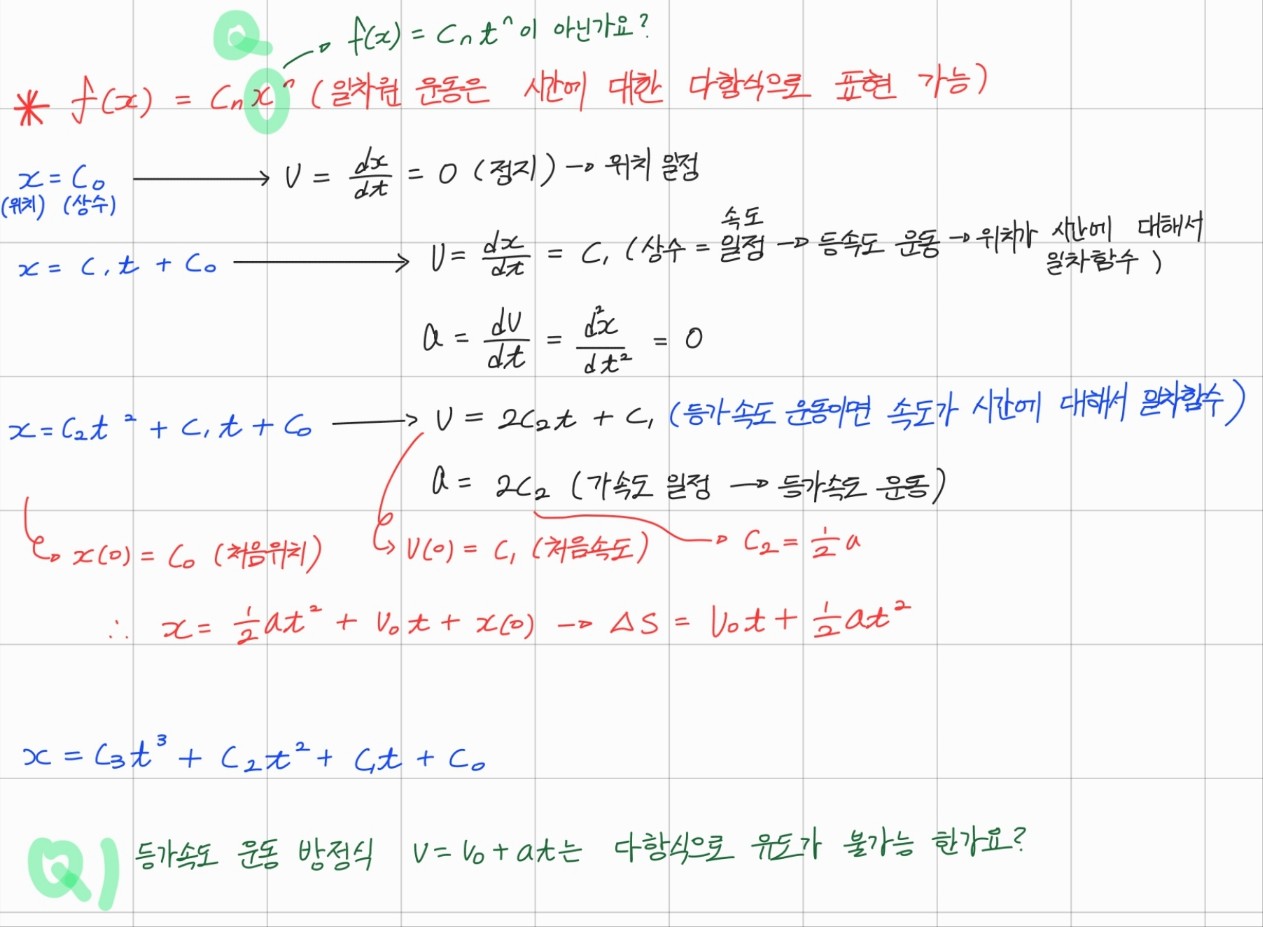 Q → f(x) = Cₙtⁿ이 아닌가요?
* f(x) = Cₙxⁿ (일차원 운동은 시간에 대한 다항식으로 표현 가능)
x = C₀ → V = dx/dt = 0 (정지) → 위치 일정
(위치) (상수)
x = C₁t + C₀ → V = dx/dt = C₁ (상수 = 속도 일정 → 등속도 운동 → 위치가 시간에 대해서 일차함수)
a = dV/dt = d²x/dt² = 0
x = C₂t² + C₁t + C₀ → V = 2C₂t + C₁ (등가속도 운동이면 속도가 시간에 대해서 일차함수)
a = 2C₂ (가속도 일정 → 등가속도 운동)
→ x(0) = C₀ (처음위치) → V(0) = C₁ (처음속도) → C₂ = ½a
∴ x = ½at² + V₀t + x(0) → ΔS = V₀t + ½at²
x = C₃t³ + C₂t² + C₁t + C₀
Q) 등가속도 운동 방정식 V = V₀ + at는 다항식으로 유도가 불가능 한가요?